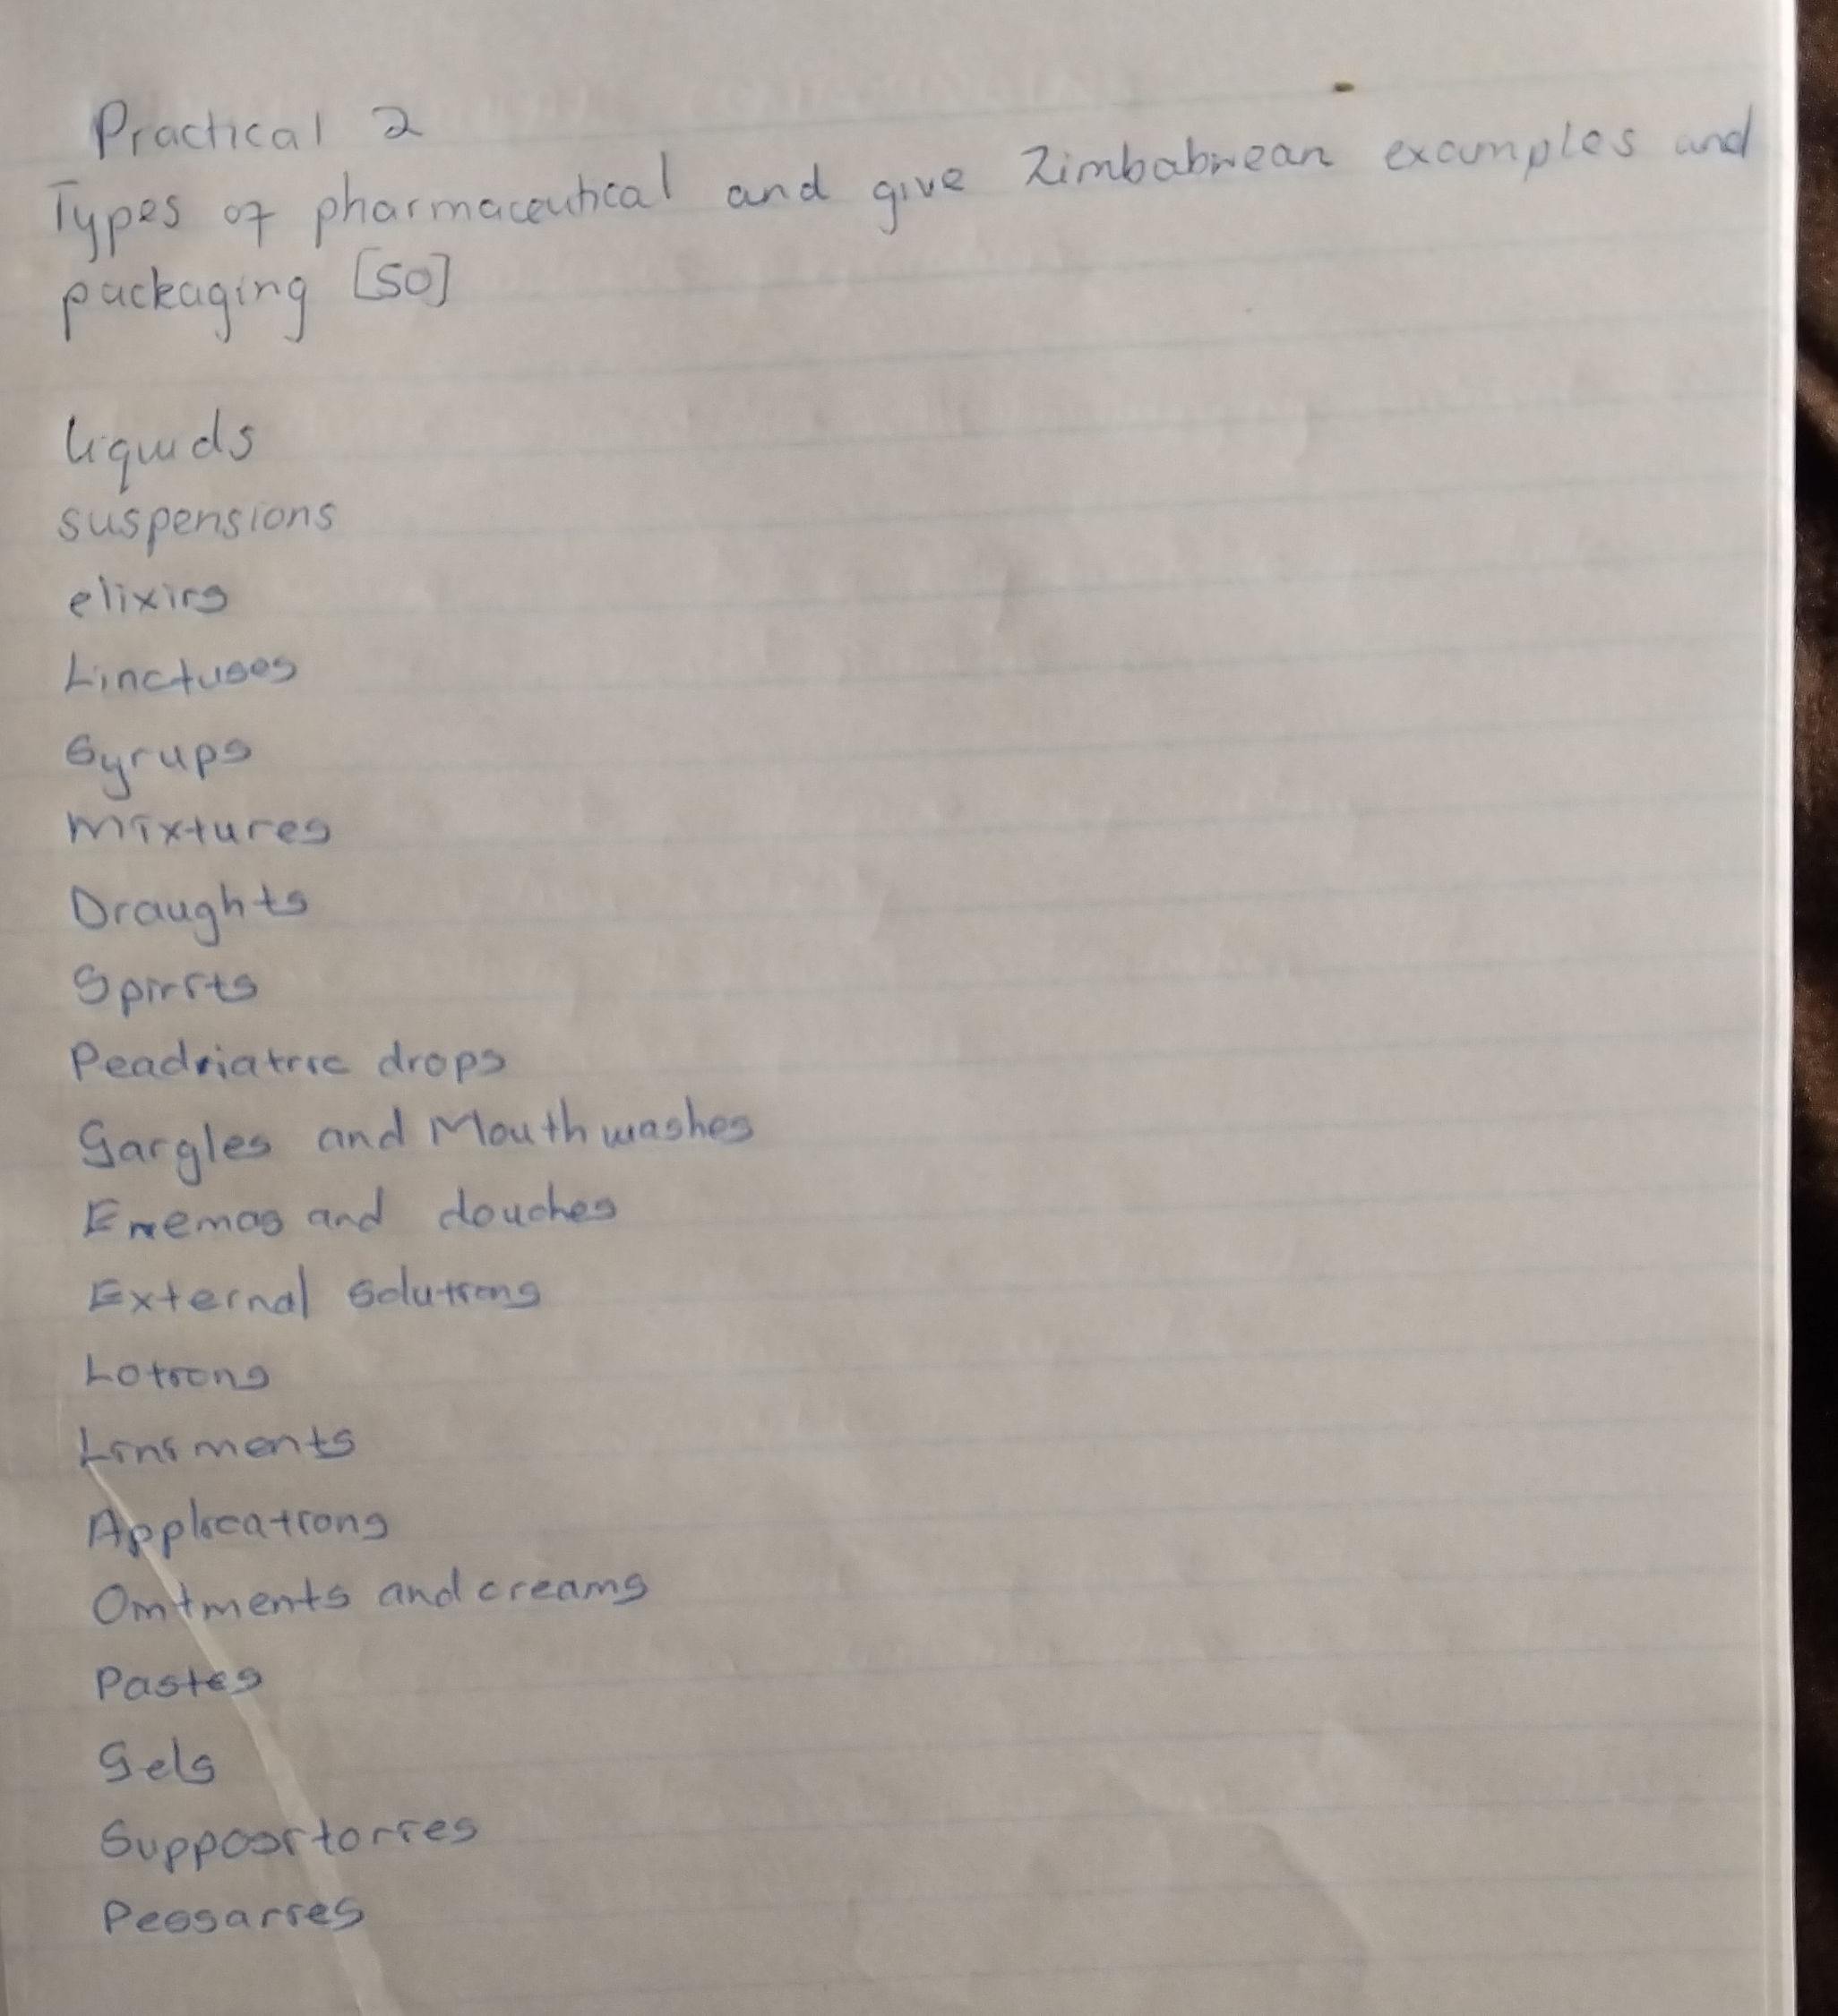 Practical 2
Types of pharmaceutical and give Zimbabwean examples and
packaging [50]
liquids
suspensions
elixirs
Linctuses
Syrups
Mixtures
Draughts
Spirits
Peadriatric drops
Gargles and Mouthwashes
Enemas and douches
External solutions
Lotions
Liniments
Applications
Ointments and creams
Pastes
Gels
Suppositories
Pessaries